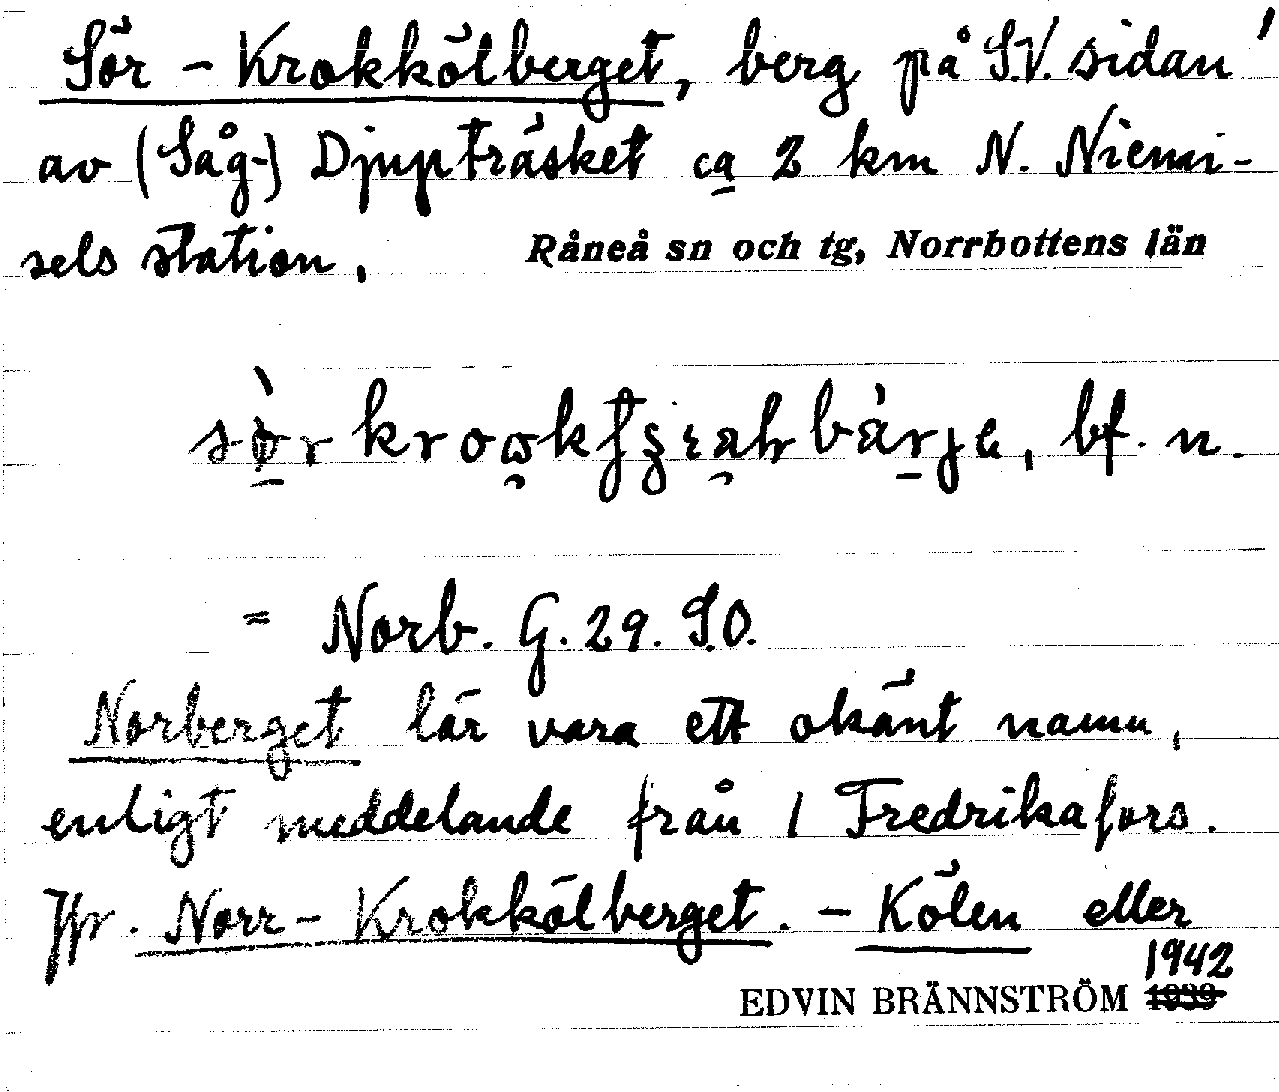 Sör-Krokkölberget, berg på S.V. sidan
av (Såg-) Djupträsket ca 2 km N. Niemi-
sels station.
Råneå sn och tg, Norrbottens län
bf. n.
= Norb. G. 29. S.O.
Norberget lär vara ett okänt namn,
enligt meddelande från / Fredrikafors.
Jfr. Norr-Krokkölberget. - Kölen eller
EDVIN BRÄNNSTRÖM 1942